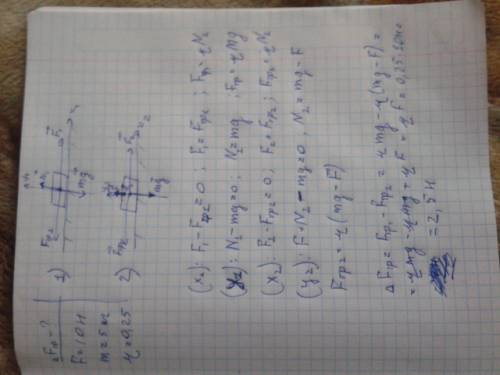 ΔFтр - ?
F = 10 Н
m = 5 кг
μ = 0,25
1)
2)
(x₂): F₁ - Fтр₂ = 0; F₁ = Fтр₂; Fтр = μN₂
(y₂): N₁ - mg = 0; N₂ = mg; Fтр = μmg
(x₂): F₂ - Fтр₂ = 0; F₂ = Fтр₂; Fтр₂ = μN₂
(y₂): F + N₂ - mg = 0; N₂ = mg - F
Fтр₂ = μ(mg - F)
ΔFтр = Fтр₁ - Fтр₂ = μmg - μ(mg - F) =
= μmg - μmg + μF = μF = 0,25·10 =
= 2,5 Н